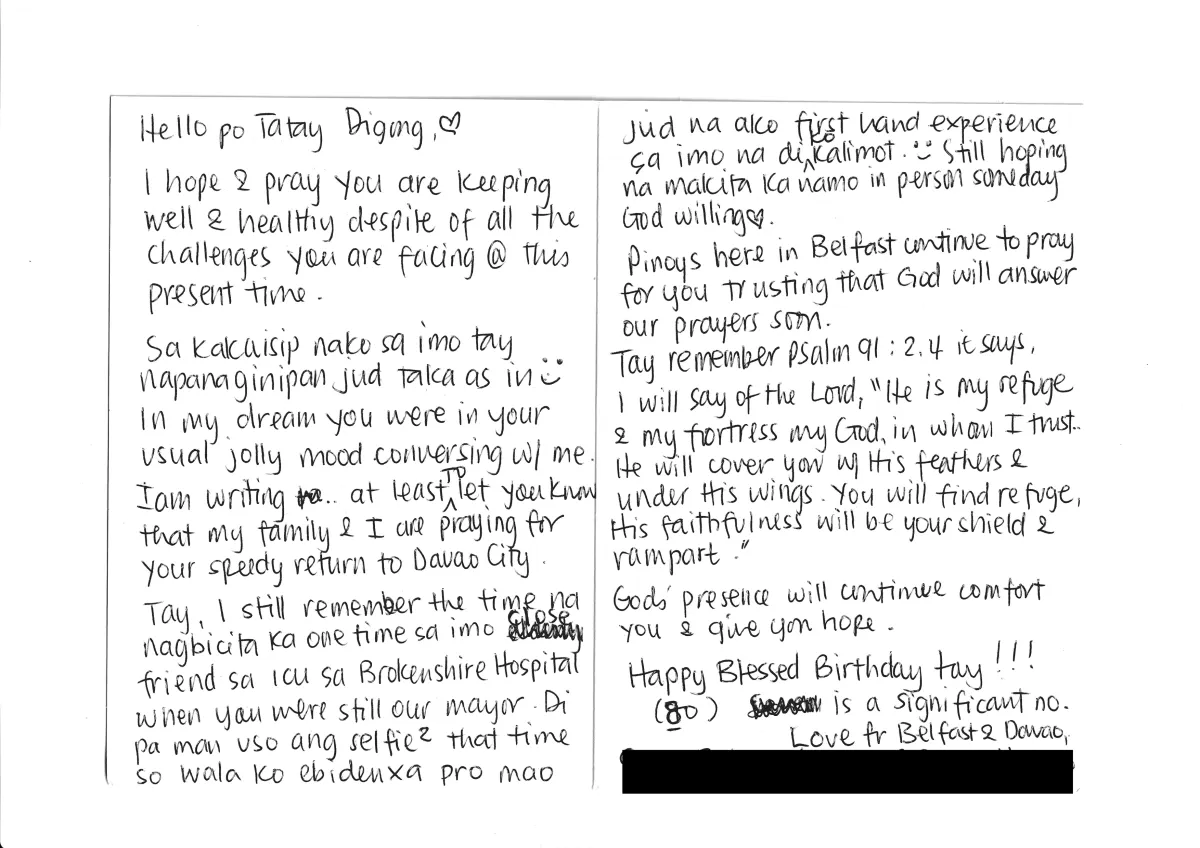 Hello po Tatay Digong, ♡
I hope & pray you are keeping
well & healthy despite of all the
challenges you are facing @ this
present time.
Sa kakaisip nako sa imo tay
napanaginipan jud taka as in
In my dream you were in your
usual jolly mood conversing w/ me.
I am writing .. at least TO let you know
that my family & I are praying for
your speedy return to Davao City.
Tay, I still remember the time na
nagbicita ka one time sa imo close
friend sa ICU sa Brokenshire Hospital
when you were still our mayor. Di
pa man uso ang selfie² that time
so wala ko ebidenxa pro mao
jud na ako first hand experience
ça imo na di ko kalimot. Still hoping
na makita ka namo in person someday
God willing ♡.
Pinoys here in Belfast continue to pray
for you trusting that God will answer
our prayers soon.
Tay remember Psalm 91 : 2.4 it says,
I will say of the Lord, "He is my refuge
& my fortress my God, in whom I trust..
He will cover you w/ His feathers &
under His wings. You will find refuge,
His faithfulness will be your shield &
rampart."
Gods' presence will continue comfort
you & give you hope.
Happy Blessed Birthday tay !!!
(80) is a significant no.
Love fr Belfast & Davao,